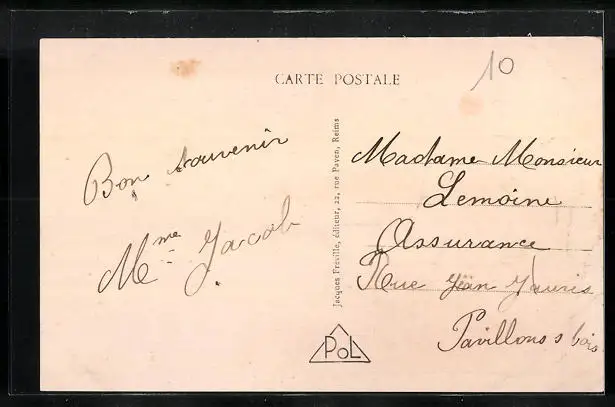 CARTE POSTALE
10
Bon souvenir
Mme Jacob
Jacques Fréville, éditeur, 22, rue Payen, Reims
POL
Madame Monsieur
Lemoine
Assurance
Rue Jean Jauris
Pavillons s bois